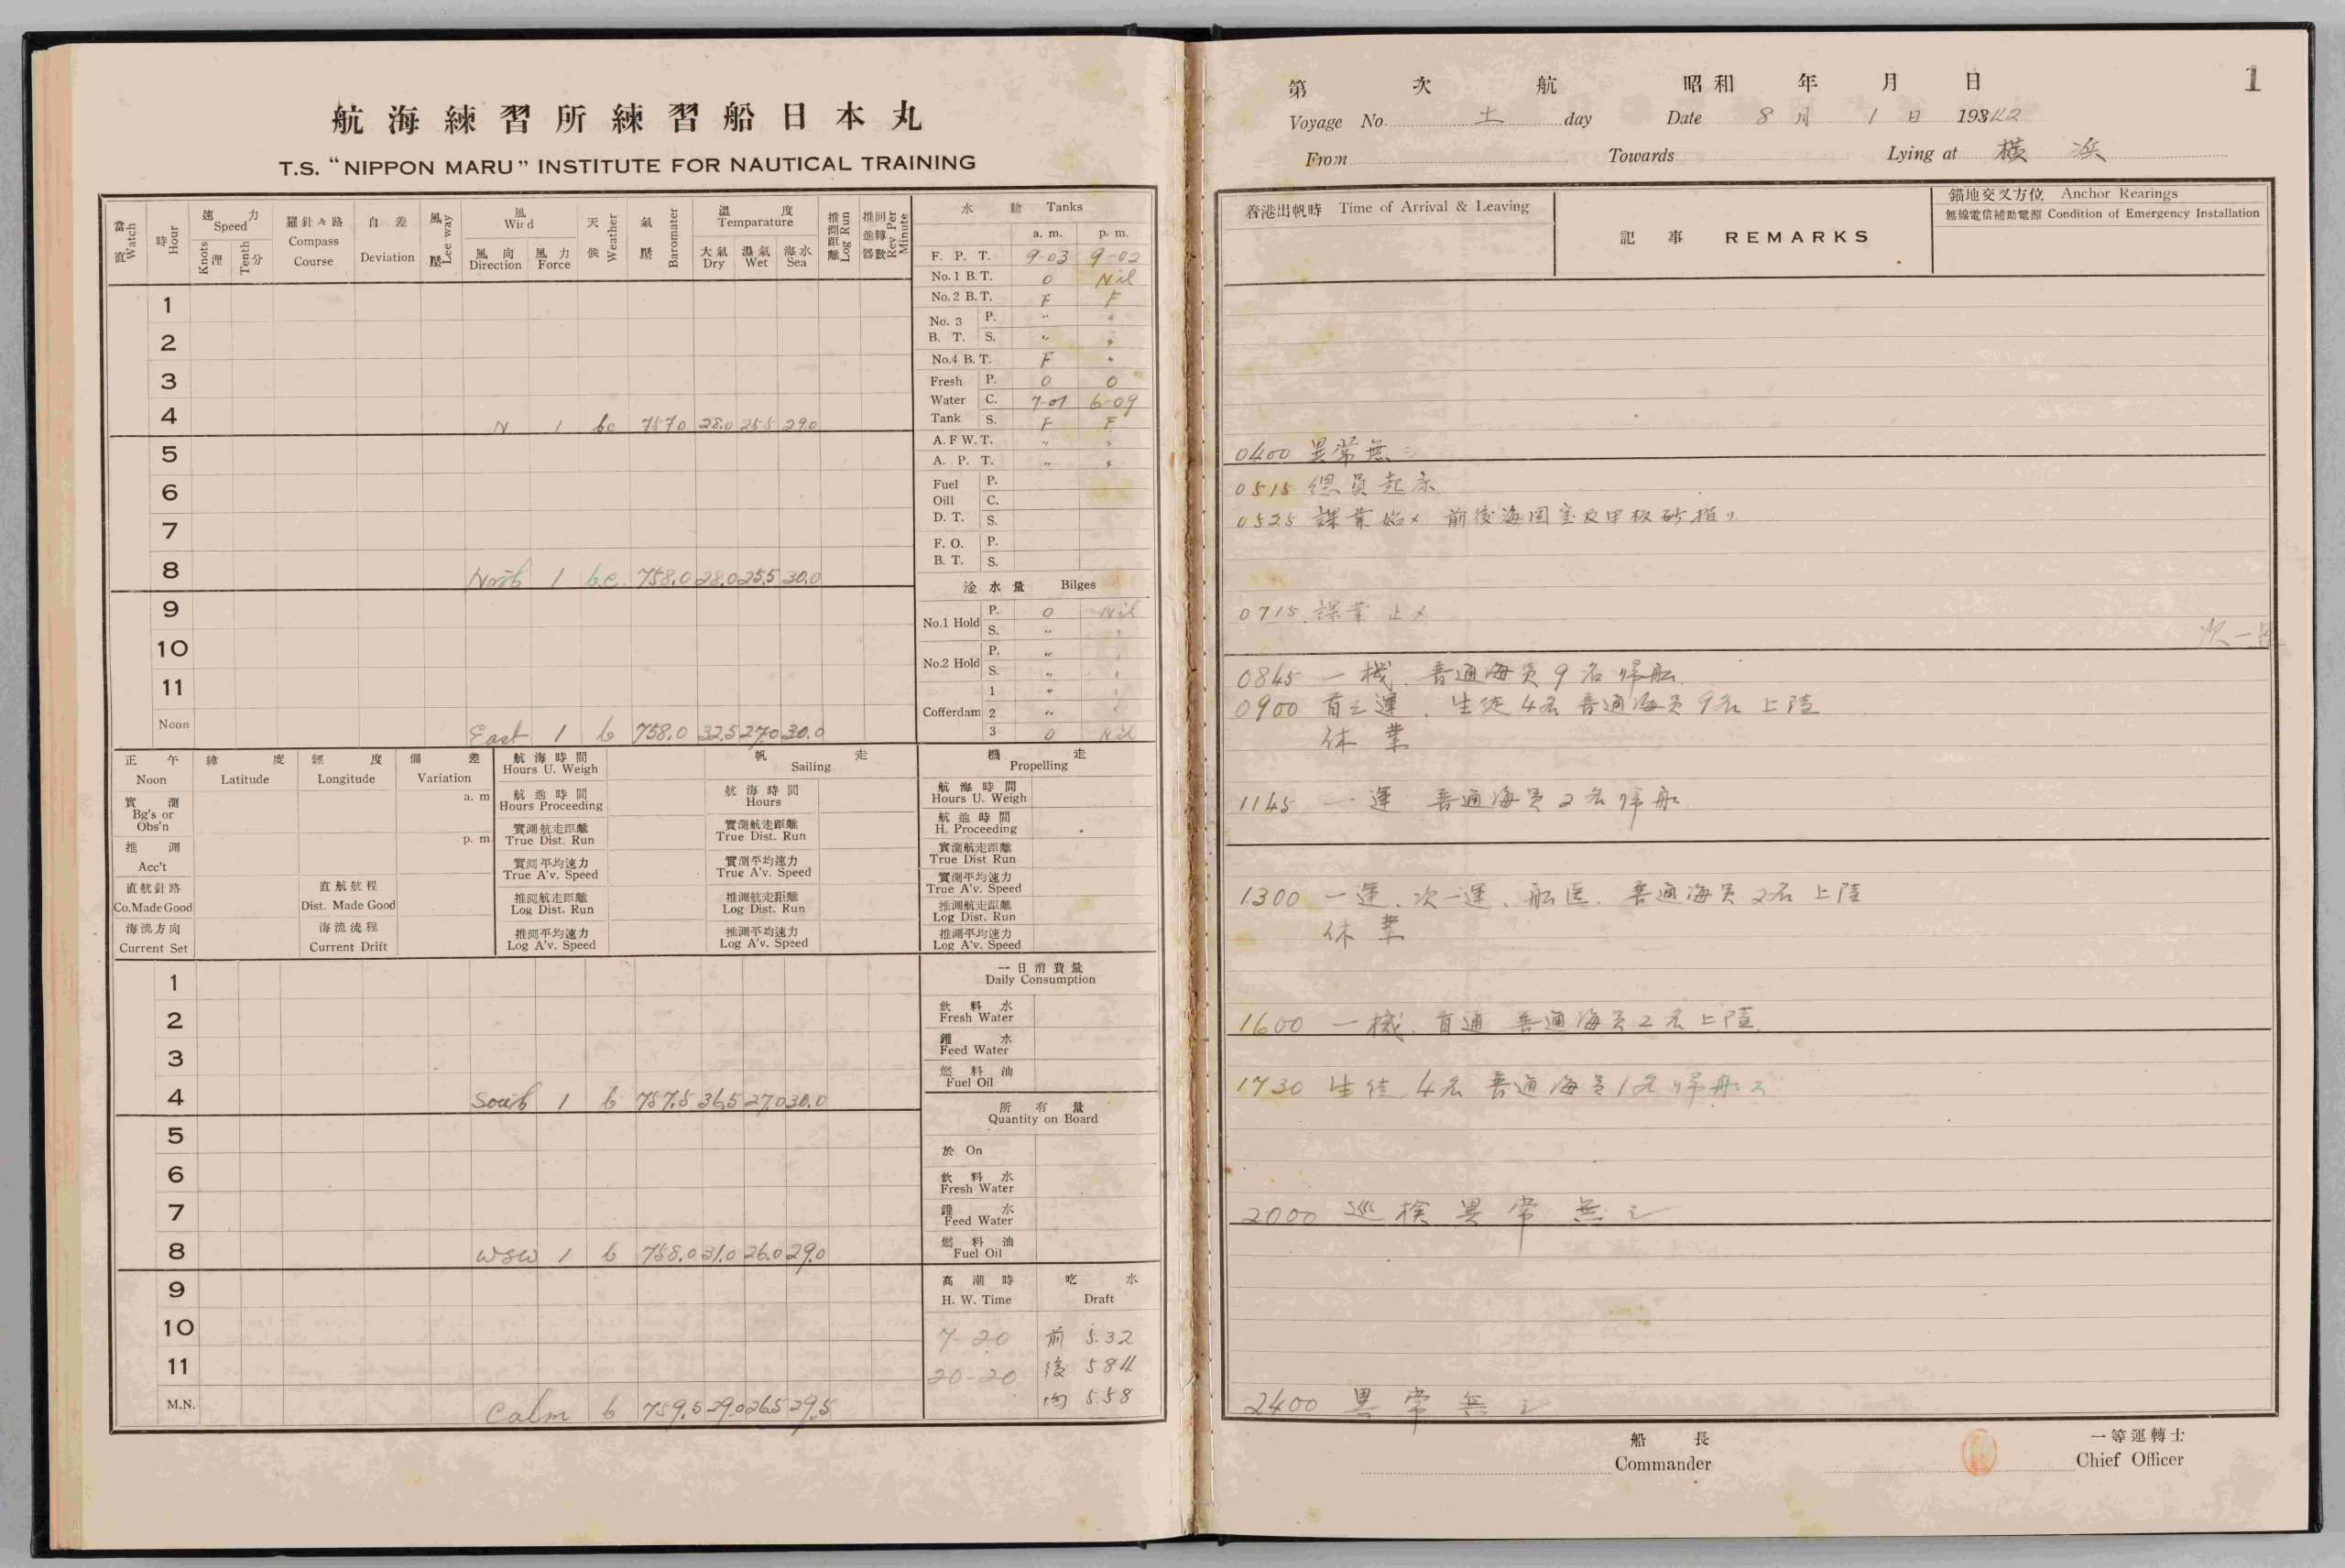 航海練習所練習船日本丸
T.S. "NIPPON MARU" INSTITUTE FOR NAUTICAL TRAINING
當直 Watch
時 Hour
速力 Speed
Knots 浬
Tenth 分
羅針々路 Compass Course
自差 Deviation
風壓 Lee way
風 Wird
風向 Direction
風力 Force
天候 Weather
氣壓 Baromater
溫度 Temparature
大氣 Dry
濕氣 Wet
海水 Sea
推測距離 Log Run
推進器回轉數 Rev Per Minute
水艙 Tanks
a. m. p. m.
F. P. T. 9-03 9-02
No.1 B.T. 0 Nil
No.2 B.T. F F
No. 3 B. T. P. " "
S. " "
No.4 B.T. F "
Fresh Water Tank P. 0 0
C. 7-01 6-09
S. F F
A. F W. T. " "
A. P. T. " "
Fuel Oill D. T. P.
C.
S.
F. O. B. T. P.
S.
淦水量 Bilges
No.1 Hold P. 0 Nil
S. " "
No.2 Hold P. " "
S. " "
Cofferdam 1 " "
2 " "
3 0 Nil
1
2
3
4 N 1 bc 757.0 28.0 25.5 29.0
5
6
7
8 North 1 b.c. 758.0 28.0 25.5 30.0
9
10
11
Noon East 1 b 758.0 32.5 27.0 30.0
正午 Noon
緯度 Latitude
經度 Longitude
偏差 Variation
a. m
p. m.
實測 Bg's or Obs'n
推測 Acc't
直航針路 Co.Made Good
直航航程 Dist. Made Good
海流方向 Current Set
海流流程 Current Drift
航海時間 Hours U. Weigh
航進時間 Hours Proceeding
實測航走距離 True Dist. Run
實測平均速力 True A'v. Speed
推測航走距離 Log Dist. Run
推測平均速力 Log A'v. Speed
帆走 Sailing
航海時間 Hours
實測航走距離 True Dist. Run
實測平均速力 True A'v. Speed
推測航走距離 Log Dist. Run
推測平均速力 Log A'v. Speed
機走 Propelling
航海時間 Hours U. Weigh
航進時間 H. Proceeding
實測航走距離 True Dist Run
實測平均速力 True A'v. Speed
推測航走距離 Log Dist. Run
推測平均速力 Log A'v. Speed
1
2
3
4 South 1 b 757.5 36.5 27.0 30.0
5
6
7
8 WSW 1 b 758.0 31.0 26.0 29.0
9
10
11
M.N. Calm b 759.5 29.0 26.5 29.5
一日消費量 Daily Consumption
飲料水 Fresh Water
罐水 Feed Water
燃料油 Fuel Oil
所有量 Quantity on Board
於 On
飲料水 Fresh Water
罐水 Feed Water
燃料油 Fuel Oil
高潮時 H. W. Time
吃水 Draft
7-20 前 5.32
20-20 後 5 84
均 5.58
1
第 次 航 昭和 年 月 日
Voyage No. 土 day Date 8月 1日 1942
From Towards Lying at 横浜
着港出帆時 Time of Arrival & Leaving
記事 REMARKS
錨地交叉方位 Anchor Rearings
無線電信補助電源 Condition of Emergency Installation
0400 異常無シ
0515 総員起床
0525 課業始メ 前後海図室及甲板砂摺リ
0715 課業止メ
次一
0845 一機、普通海員9名帰船
0900 首三運、生徒4名普通海員9名上陸
休業
1145 一運 普通海員2名帰船
1300 一運、次一運、船医、普通海員2名上陸
休業
1600 一機、首通 普通海員2名上陸
1730 生徒4名普通海員1名帰船ス
2000 巡検異常無シ
2400 異常無シ
船長 Commander
一等運轉士 Chief Officer